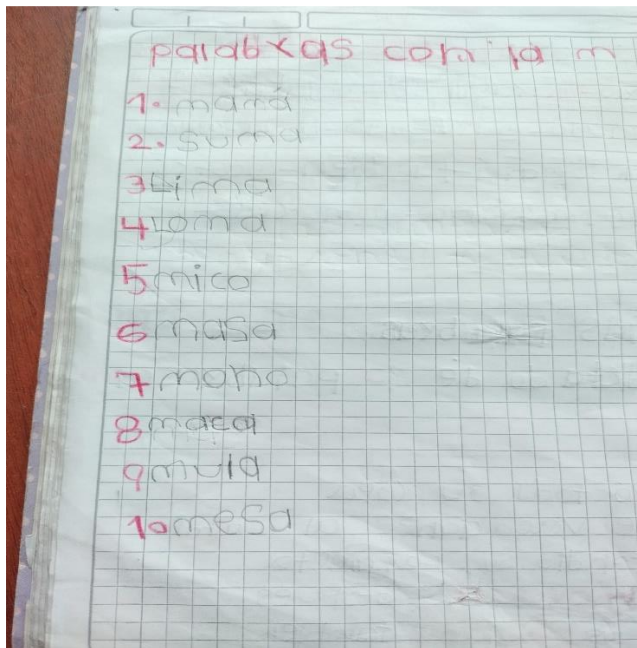 palabras con la m
1. mamá
2. suma
3 Lima
4 Loma
5 mico
6 masa
7 mono
8
9 mula
10 mesa